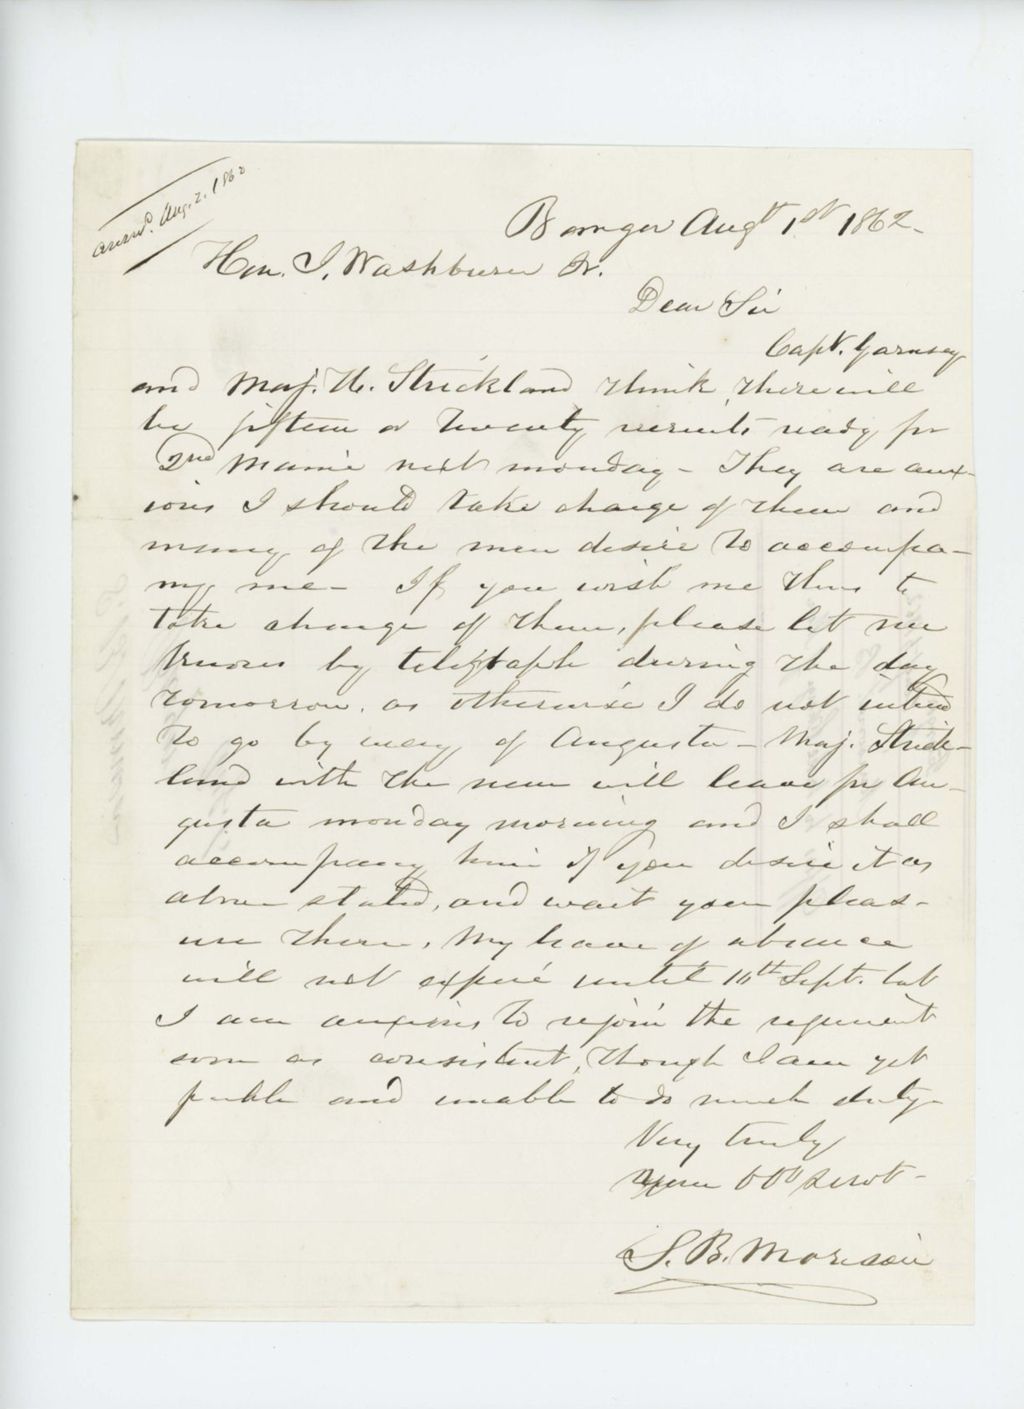 answd. Aug. 2. 1862
Bangor Augt 1st 1862.
Hon. I. Washburn Jr.
Dear Sir
Capt. Garnsey
and Maj. H. Strickland think there will
be fifteen or twenty recruits ready for
2nd Maine next monday - They are anx-
ious I should take charge of them and
many of the men desire to accompa-
ny me - If you wish me thus to
take charge of them, please let me
know by telegraph during the day
tomorrow, as otherwise I do not intend
to go by way of Augusta - Maj. Strick-
land with the men will leave for Au-
gusta monday morning and I shall
accompany him if you desire it as
above stated, and wait your pleas-
ure there. My leave of absence
will not expire until 10th Sept. but
I am anxious to rejoin the regiment
soon as consistent, though I am yet
feeble and unable to do much duty -
Very truly
Your Obt Servt -
S. B. Morison